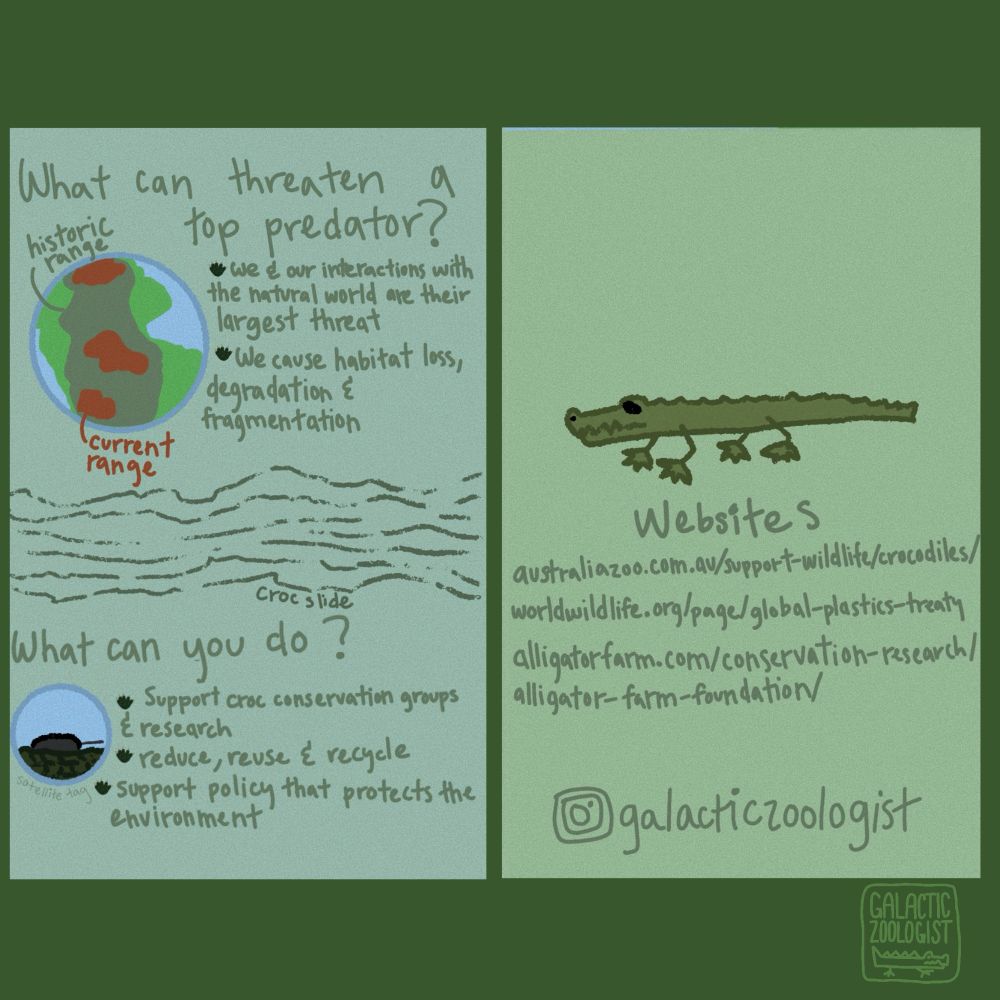 What can threaten a
top predator?
historic
range
We & our interactions with
the natural world are their
largest threat
We cause habitat loss,
degradation &
fragmentation
current
range
Croc slide
What can you do?
Support croc conservation groups
& research
reduce, reuse & recycle
satellite tag
Support policy that protects the
environment
Websites
australiazoo.com.au/support-wildlife/crocodiles/
worldwildlife.org/page/global-plastics-treaty
alligatorfarm.com/conservation-research/
alligator-farm-foundation/
galacticzoologist
GALACTIC
ZOOLOGIST